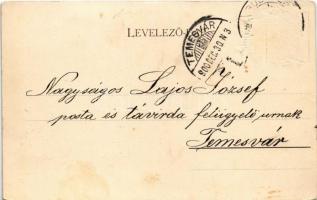 LEVELEZŐ-
TEMESVÁR
900 DEC. 30 N 3
Nagyságos Lajos József
posta és távirda felügyelő urnak
Temesvár